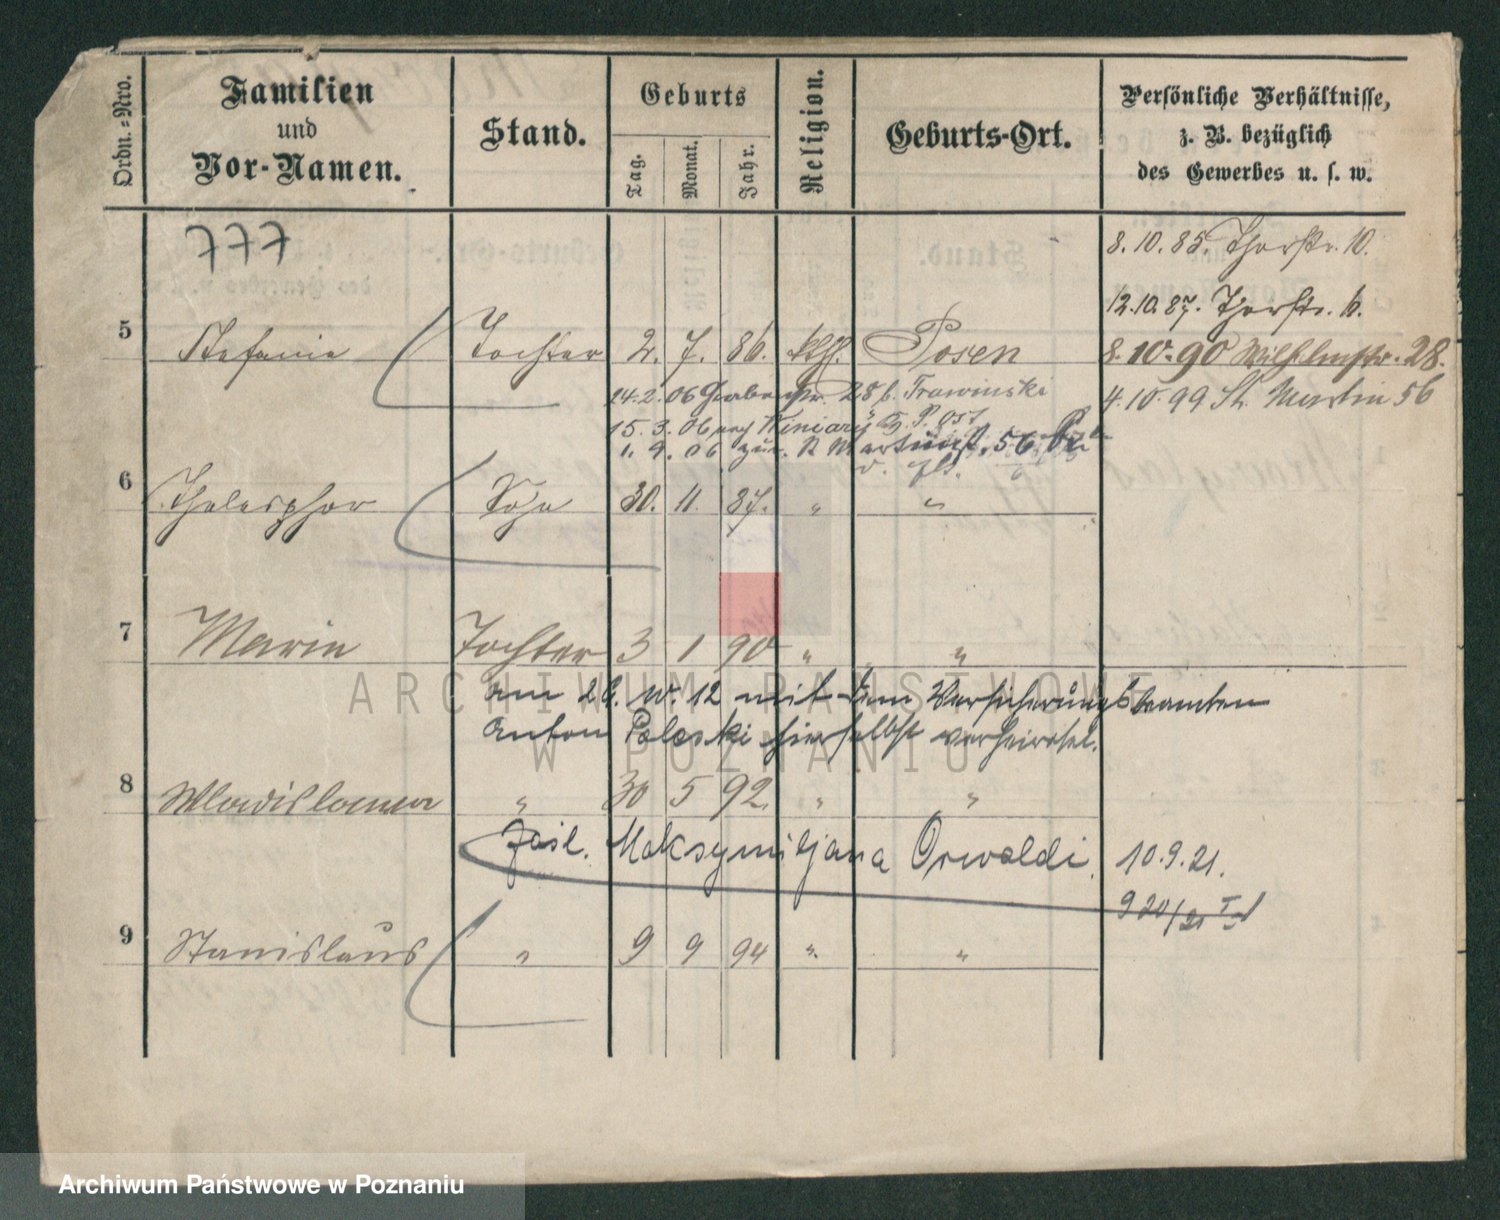 Ordn.-Nro.
Familien
und
Vor-Namen.
Stand.
Geburts
Tag.
Monat.
Jahr.
Religion.
Geburts-Ort.
Persönliche Verhältnisse,
z. B. bezüglich
des Gewerbes u. s. w.
777
8. 10. 85. Thorstr. 10.
12. 10. 87. Thorstr. 6.
5 Stefanie Tochter 2. 7. 86. kth. Posen 8. 10. 90 Wilhelmstr. 28.
14. 2. 06 28 b. Trawinski
4. 10. 99 St. Martin 56
15. 3. 06 nach Winiary
1. 9. 06 zur. St Martinst. 56
6 Thelesphor Sohn 30. 11. 87. " "
7 Marie Tochter 3 1 90 " "
am 26. 12 mit dem Versicherungsbeamten
Anton hierselbst verheirathet.
8 Wladislawa " 30 5 92. " "
Zasl. Maksymiljana Orwaldi. 10. 9. 21.
920/21
9 Stanislaus " 9 9 94 " "
ARCHIWUM PAŃSTWOWE
W POZNANIU
Archiwum Państwowe w Poznaniu